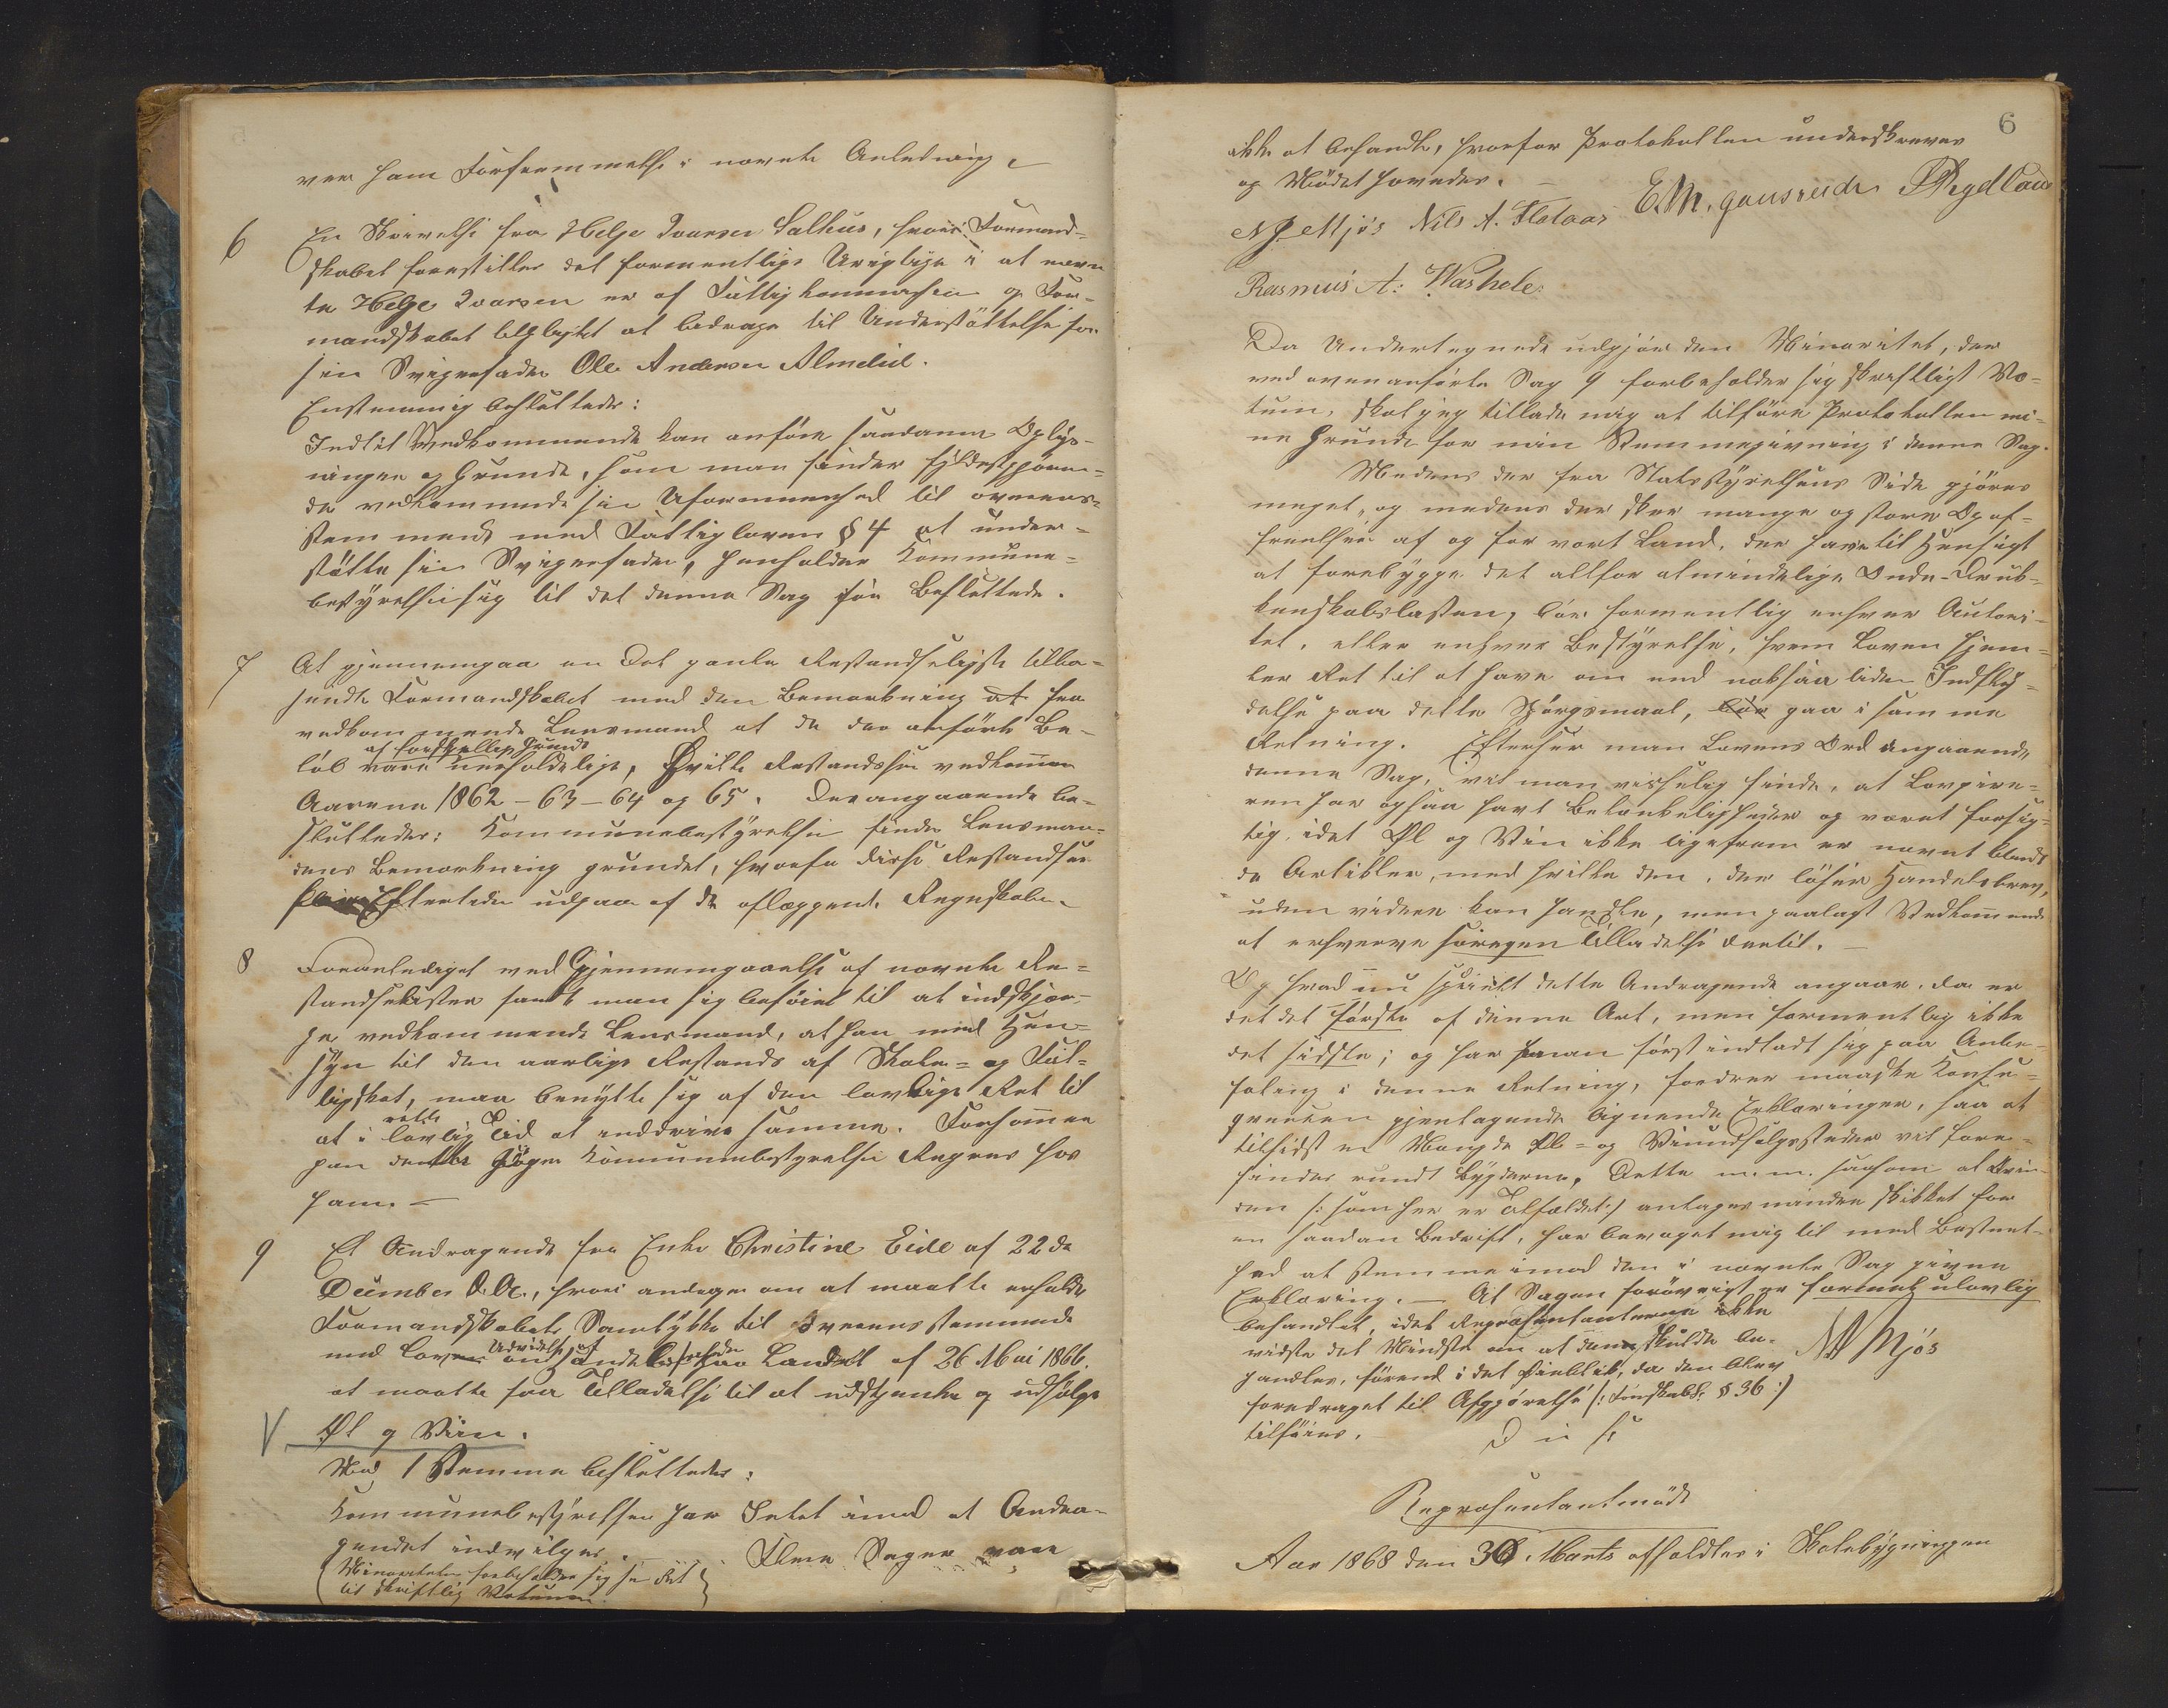 ver ham Forfremmelse i nævnte Anledning.
6 En Skrivelse fra Helje Ivarsen Salhus, hvori Formand-
skabet forestilles det formentlige Urigtige i at nævn-
te Helge Ivarsen er af Fattigkommissionen og For-
mandskabet tilpligtet at bidrage til Understøttelse for
sin Svigerfader Ole Andersen Almelid.
Enstemmig besluttedes:
Indtil Vedkommende kan anføre saadanne Oplys-
ninger og Grunde, som man finder fyldestgjøren-
de vedkommende sin Uformuenhed til overens-
stemmende med Fattigloven § 4 at under-
støtte sin Svigerfader, henholder Kommune-
bestyrelsen sig til det denne Sag før Besluttede.
7 At gjennemgaa en Del gamle Restandselister tilba-
sendte Formandskabet med den Bemærkning at fra
vedkommende Lensmand at de der anførte Be-
af forskjellige Grunde
løb vare uerholdelige, hvilke Restandser vedkommer
Aarene 1862 – 63 – 64 og 65. Derangaaende be-
sluttedes: Kommunebestyrelsen finder Lensman-
dens Bemærkning grundet, hvorfor disse Restandser
Eftertiden udgaar af de aflæggende Regnskaber.
8 Foranlediget ved Gjennemgaaelse af nævnte Re-
standselister fandt man sig beføiet til at indskjær-
pe vedkommende Lensmand, at han med Hen-
syn til den aarlige Restands af Skole- og Fat-
tigskat, maa benytte sig af den lovlige Ret til
rette
at i lovlig Tid at inddrive samme. Forsømmer
han dette søger Kommunebestyrelsen Regres hos
ham. –
9 Et Andragende fra Enke Christine Eide af 22de
December d. A., hvori andrages om at maatte erholde
Formandskabets Samtykke til overensstemmende
Udvidelse af
med Lov om Handelsfriheden paa Landet af 26 Mai 1866.
at maatte faa Tilladelse til at udskjenke og udsælge
V Øl og Viin.
Mod 1 Stemme besluttedes:
Kommunebestyrelsen har Intet imod at Andra-
gendet indvilges. – Flere Sager vare
(Minoriteten forbeholder sig sin Ret
til skriftlig Votum)
6
ikke at behandle, hvorfor Protokollen underskreves
og Mødet hævedes. –
N J Mjøs Nils A. Flataas E. M. Gausereide
Rasmus A: Washele
Da Undertegnede udgjør den Minoritet, der
ved ovenanførte Sag 9 forbeholder sig skriftligt Vo-
tum, skal jeg tillade mig at tilføre Protokollen mi-
ne Grunde for min Stemmegivning i denne Sag.
Medens der fra Statsstyrelsens Side gjøres
meget, og medens der sker mange og store Opof-
frelser af og for vort Land, der have til Hensigt
at forebygge det altfor almindelige Onde – Druk-
kenskabslasten, bør formentlig enhver Autori-
tet, eller enhver Bestyrelse, hvem Loven hjem-
ler Ret til at have om end noksaa liden Indfly-
delse paa dette Spørgsmaal, bør gaa i samme
Retning. Efterser man Lovens Ord angaaende
denne Sag, vil man visselig finde, at Lovgive-
ren har ogsaa havt Betænkeligheder og været forsig-
tig, idet Øl og Vin ikke ligefrem er nævnt blandt
de Artikler, med hvilke den, der løser Handelsbrev,
uden videre kan handle, men paalagt Vedkommende
at erhverve færegen Tilladelse dertil. –
Og hvad nu specielt dette Andragende angaar, da er
det det første af denne Art, men formentlig ikke
det sidste; og har man først indladt sig paa Anbe-
faling i denne Retning, fordrer maaske Konse-
qventsen gjentagende lignende Erklæringer, saa at
tilsidst en Mængde Øl- og Viinudsalgssteder vil fore-
findes rundt Bygderne. Dette m. m. saasom at Kvin-
den /: som her er Tilfældet :/ antages mindre skikket for
en saadan Bedrift, har bevæget mig til med Bestemt-
hed at stemme imod den i nævnte Sag givne
Erklæring. – At Sagen forøvrigt er formelt ulovlig
behandlet, idet Repræsentanterne ikke
vidste det Mindste om at den skulde be-
handles, førend i det Øieblik, da den blev
foredraget til Afgjørelse (: Formskabsl. § 36 :)
tilføies.
D u s:
N J Mjøs
Repræsentantmøde
Aar 1868 den 30 Marts afholdtes i Skolebygningen